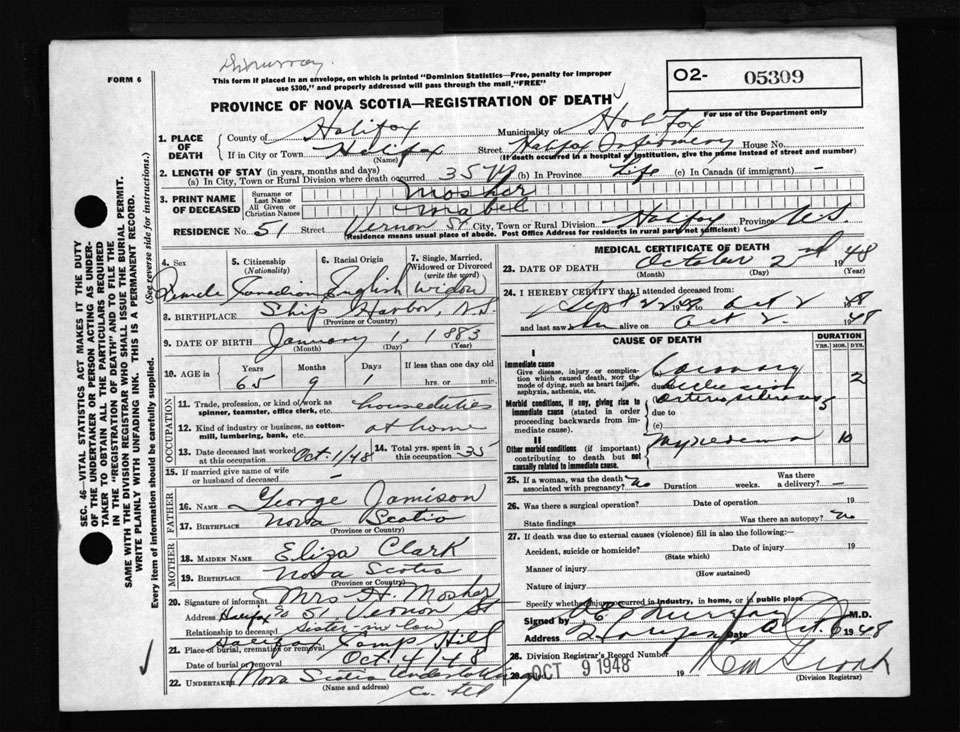 FORM 6
This form if placed in an envelope, on which is printed "Dominion Statistics—Free, penalty for improper
use $300," and properly addressed will pass through the mail "FREE"
O2- 05309
PROVINCE OF NOVA SCOTIA—REGISTRATION OF DEATH
For use of the Department only
1. PLACE OF DEATH
County of Halifax Municipality of Halifax
If in City or Town Halifax (Name) Street Halifax Infirmary House No.
(If death occurred in a hospital or institution, give the name instead of street and number)
2. LENGTH OF STAY (in years, months and days)
(a) In City, Town or Rural Division where death occurred 35 (b) In Province Life (c) In Canada (if immigrant) -
3. PRINT NAME OF DECEASED
Surname or Last Name Mosher
All Given or Christian Names Mabel
RESIDENCE No. 51 Street Vernon St City, Town or Rural Division Halifax Province N.S.
(Residence means usual place of abode. Post Office Address for residents in rural parts not sufficient)
4. Sex
Female
5. Citizenship (Nationality)
Canadian
6. Racial Origin
English
7. Single, Married, Widowed or Divorced (write the word)
Widow
8. BIRTHPLACE Ship Harbor, N.S.
(Province or Country)
9. DATE OF BIRTH January 1, 1883
(Month) (Day) (Year)
10. AGE in Years Months Days If less than one day old
65 9 1 hrs. or min.
OCCUPATION
11. Trade, profession, or kind of work as spinner, teamster, office clerk, etc. houseduties
12. Kind of industry or business, as cotton-mill, lumbering, bank, etc. at home
13. Date deceased last worked at this occupation Oct. 1/48
14. Total yrs. spent in this occupation 35
15. If married give name of wife or husband of deceased -
FATHER
16. Name George Jamison
17. BIRTHPLACE Nova Scotia
(Province or Country)
MOTHER
18. MAIDEN NAME Eliza Clark
19. BIRTHPLACE Nova Scotia
(Province or Country)
20. Signature of informant Mrs H. Mosher
Address Halifax 51 Vernon St
Relationship to deceased Sister-in-law
21. Place of burial, cremation or removal Camp Hill
Date of burial or removal Oct. 4/48
22. UNDERTAKER Nova Scotia Undertaking
(Name and address) Co. Ltd
MEDICAL CERTIFICATE OF DEATH
23. DATE OF DEATH October 2nd 1948
(Month) (Day) (Year)
24. I HEREBY CERTIFY that I attended deceased from:
Sept 22 1948 Oct 2 1948
and last saw alive on Oct 2. 1948
CAUSE OF DEATH
DURATION
YRS. MOS. DYS.
I
Immediate cause
Give disease, injury or complication which caused death, not the mode of dying, such as heart failure, asphyxia, asthenia, etc.
Coronary occlusion 2
Morbid conditions, if any, giving rise to immediate cause (stated in order proceeding backwards from immediate cause).
due to
Arteriosclerosis 5
due to
(c)
II
Other morbid conditions (if important) contributing to death but not causally related to immediate cause.
Myxedema 10
25. If a woman, was the death associated with pregnancy? No Duration weeks. Was there a delivery? -
26. Was there a surgical operation? Date of operation 19
State findings Was there an autopsy? No
27. If death was due to external causes (violence) fill in also the following:
Accident, suicide or homicide? Date of injury 19
(State which)
Manner of injury
(How sustained)
Nature of injury
Specify whether injury occurred in industry, in home, or in public place
Signed by M.D.
Address Date Oct. 6 1948
28. Division Registrar's Record Number
29. Filed OCT 9 1948 19
(Division Registrar)
SEC. 46—VITAL STATISTICS ACT MAKES IT THE DUTY
OF THE UNDERTAKER OR PERSON ACTING AS UNDER-
TAKER TO OBTAIN ALL THE PARTICULARS REQUIRED
IN THE "REGISTRATION OF DEATH" AND TO FILE THE
SAME WITH THE DIVISION REGISTRAR WHO SHALL ISSUE THE BURIAL PERMIT.
WRITE PLAINLY WITH UNFADING INK. THIS IS A PERMANENT RECORD.
Every item of information should be carefully supplied. (See reverse side for instructions.)